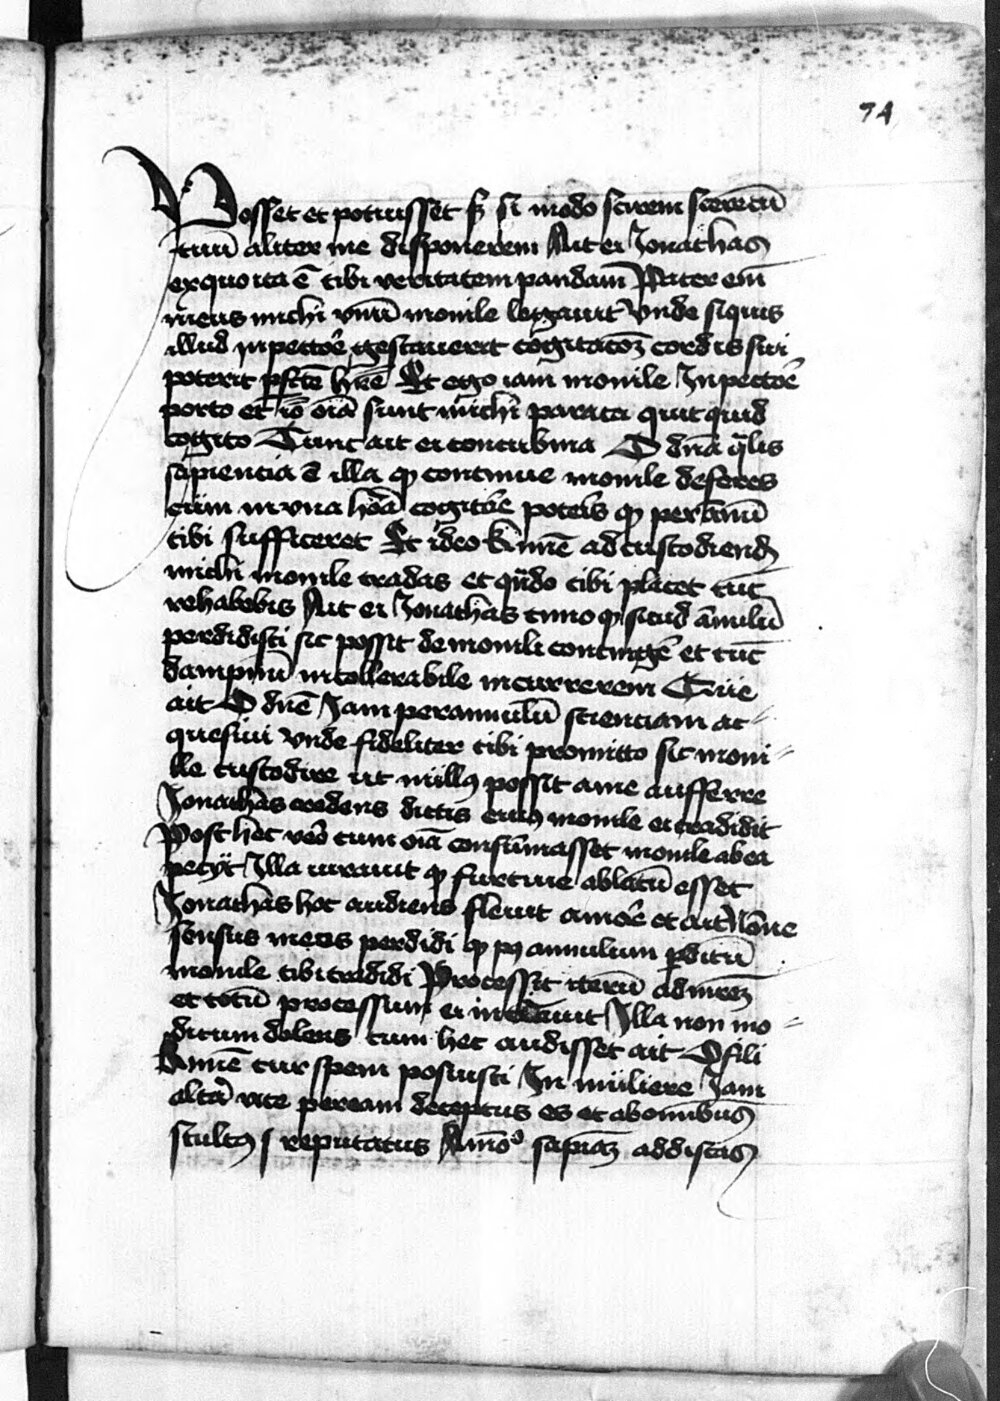 74
Posset et potuisset sz si modo scirem secretū
tuū aliter me disponerem Ait ei Jonathas
exquo ita ē tibi veritatem pandam Pater em̄
meus michi vnū monile legauit Vnde siquis
illud in pectore gestauerit cogitacōꝫ cordis sui
poterit h̄re Et ego iam monile In pectore
porto et iō oīa sunt michi parata quitquid
cogito Tunc ait ei concubina O dn̄a q̄lis
sapiencia ē illa ꝙ continue monile deferes
cum in vna hōa cogitare poteris ꝙ per annū
tibi sufficeret Et ideo ad custodiend
michi monile tradas et qn̄do tibi placet tūc
rehabebis Ait ei Jonathas timo ꝙ sicud ānulū
perdidisti sic possit de monili contingē et tūc
dampnū intollerabile incurrerem Cui
ait O dn̄e Jam per annulū scienciam ac-
quesiui Vnde fideliter tibi promitto sic moni-
lle custodire ut nullꝰ possit a me aufferre
Jonathas credens dictis eiꝰ monile ei tradidit
Post hec vēo cum oīa consūmasset monile ab ea
petijt Illa iurauit ꝙ furtiue ablatū esset
Jonathas hoc audiens fleuit amare et ait Nōne
sensus meus perdidi ꝙ pꝰ annulum ꝑditū
monile tibi tradidi Processit iterū ad mrēꝫ
et totū processum ei Illa non mo-
dicum dolens cum hec audisset ait O fili
cur spem posuisti In muliere Jam
altā vice per eam deceptus es et ab omnibus
stultꝰ reputatus sapiaꝫ addiscas